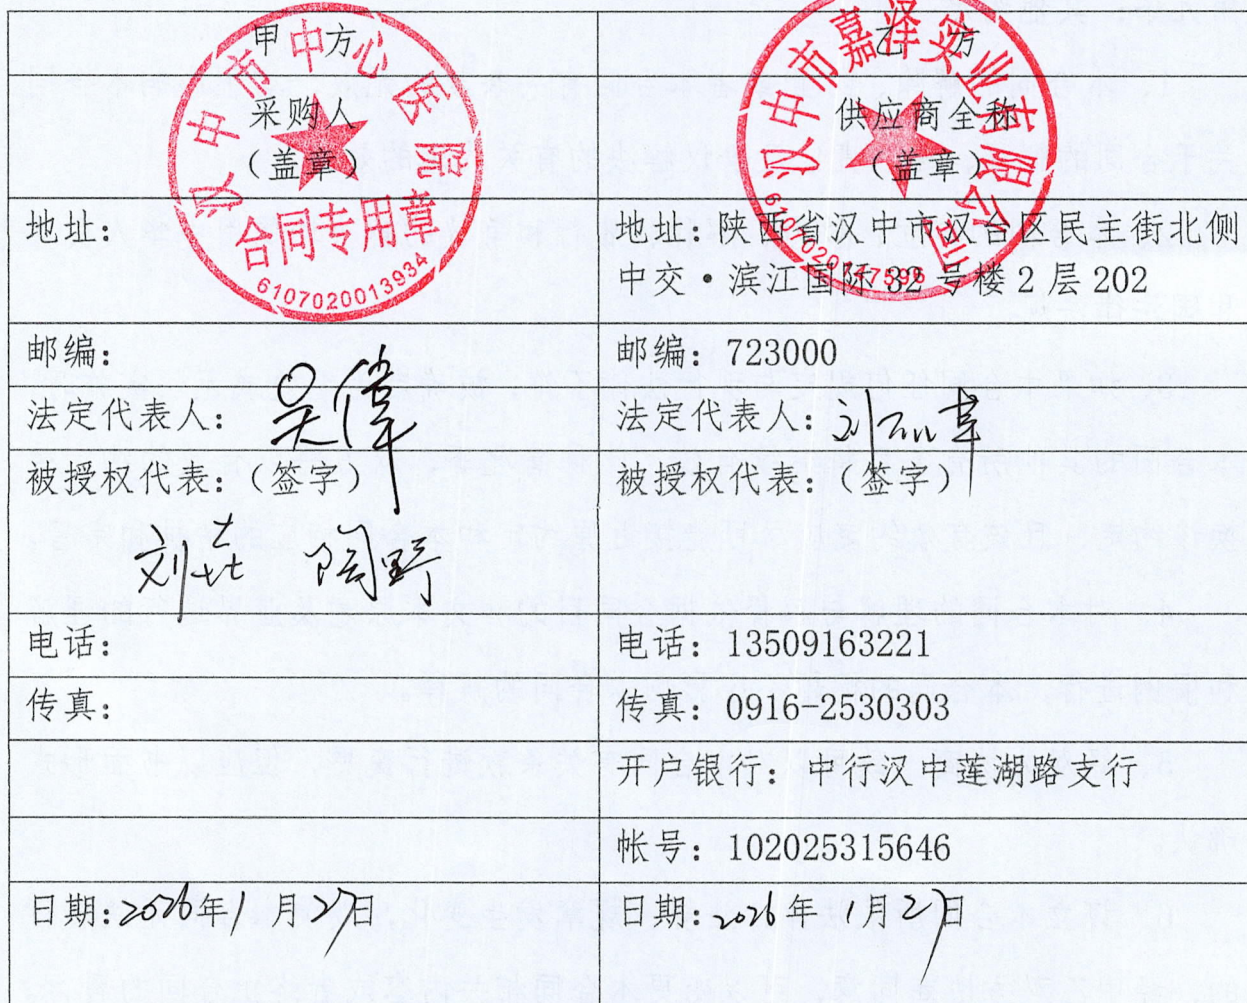 甲 方
乙 方
采购人
(盖章)
供应商全称
(盖章)
汉中市中心医院
合同专用章
6107020013934
汉中市嘉泽实业有限公司
地址:
地址:陕西省汉中市汉台区民主街北侧
中交·滨江国际 32 号楼 2 层 202
邮编:
邮编: 723000
法定代表人: 吴偉
法定代表人: 刘
被授权代表:(签字)
被授权代表:(签字)
刘 陶野
电话:
电话: 13509163221
传真:
传真: 0916-2530303
开户银行: 中行汉中莲湖路支行
帐号: 102025315646
日期:2026年1月27日
日期:2026年1月27日